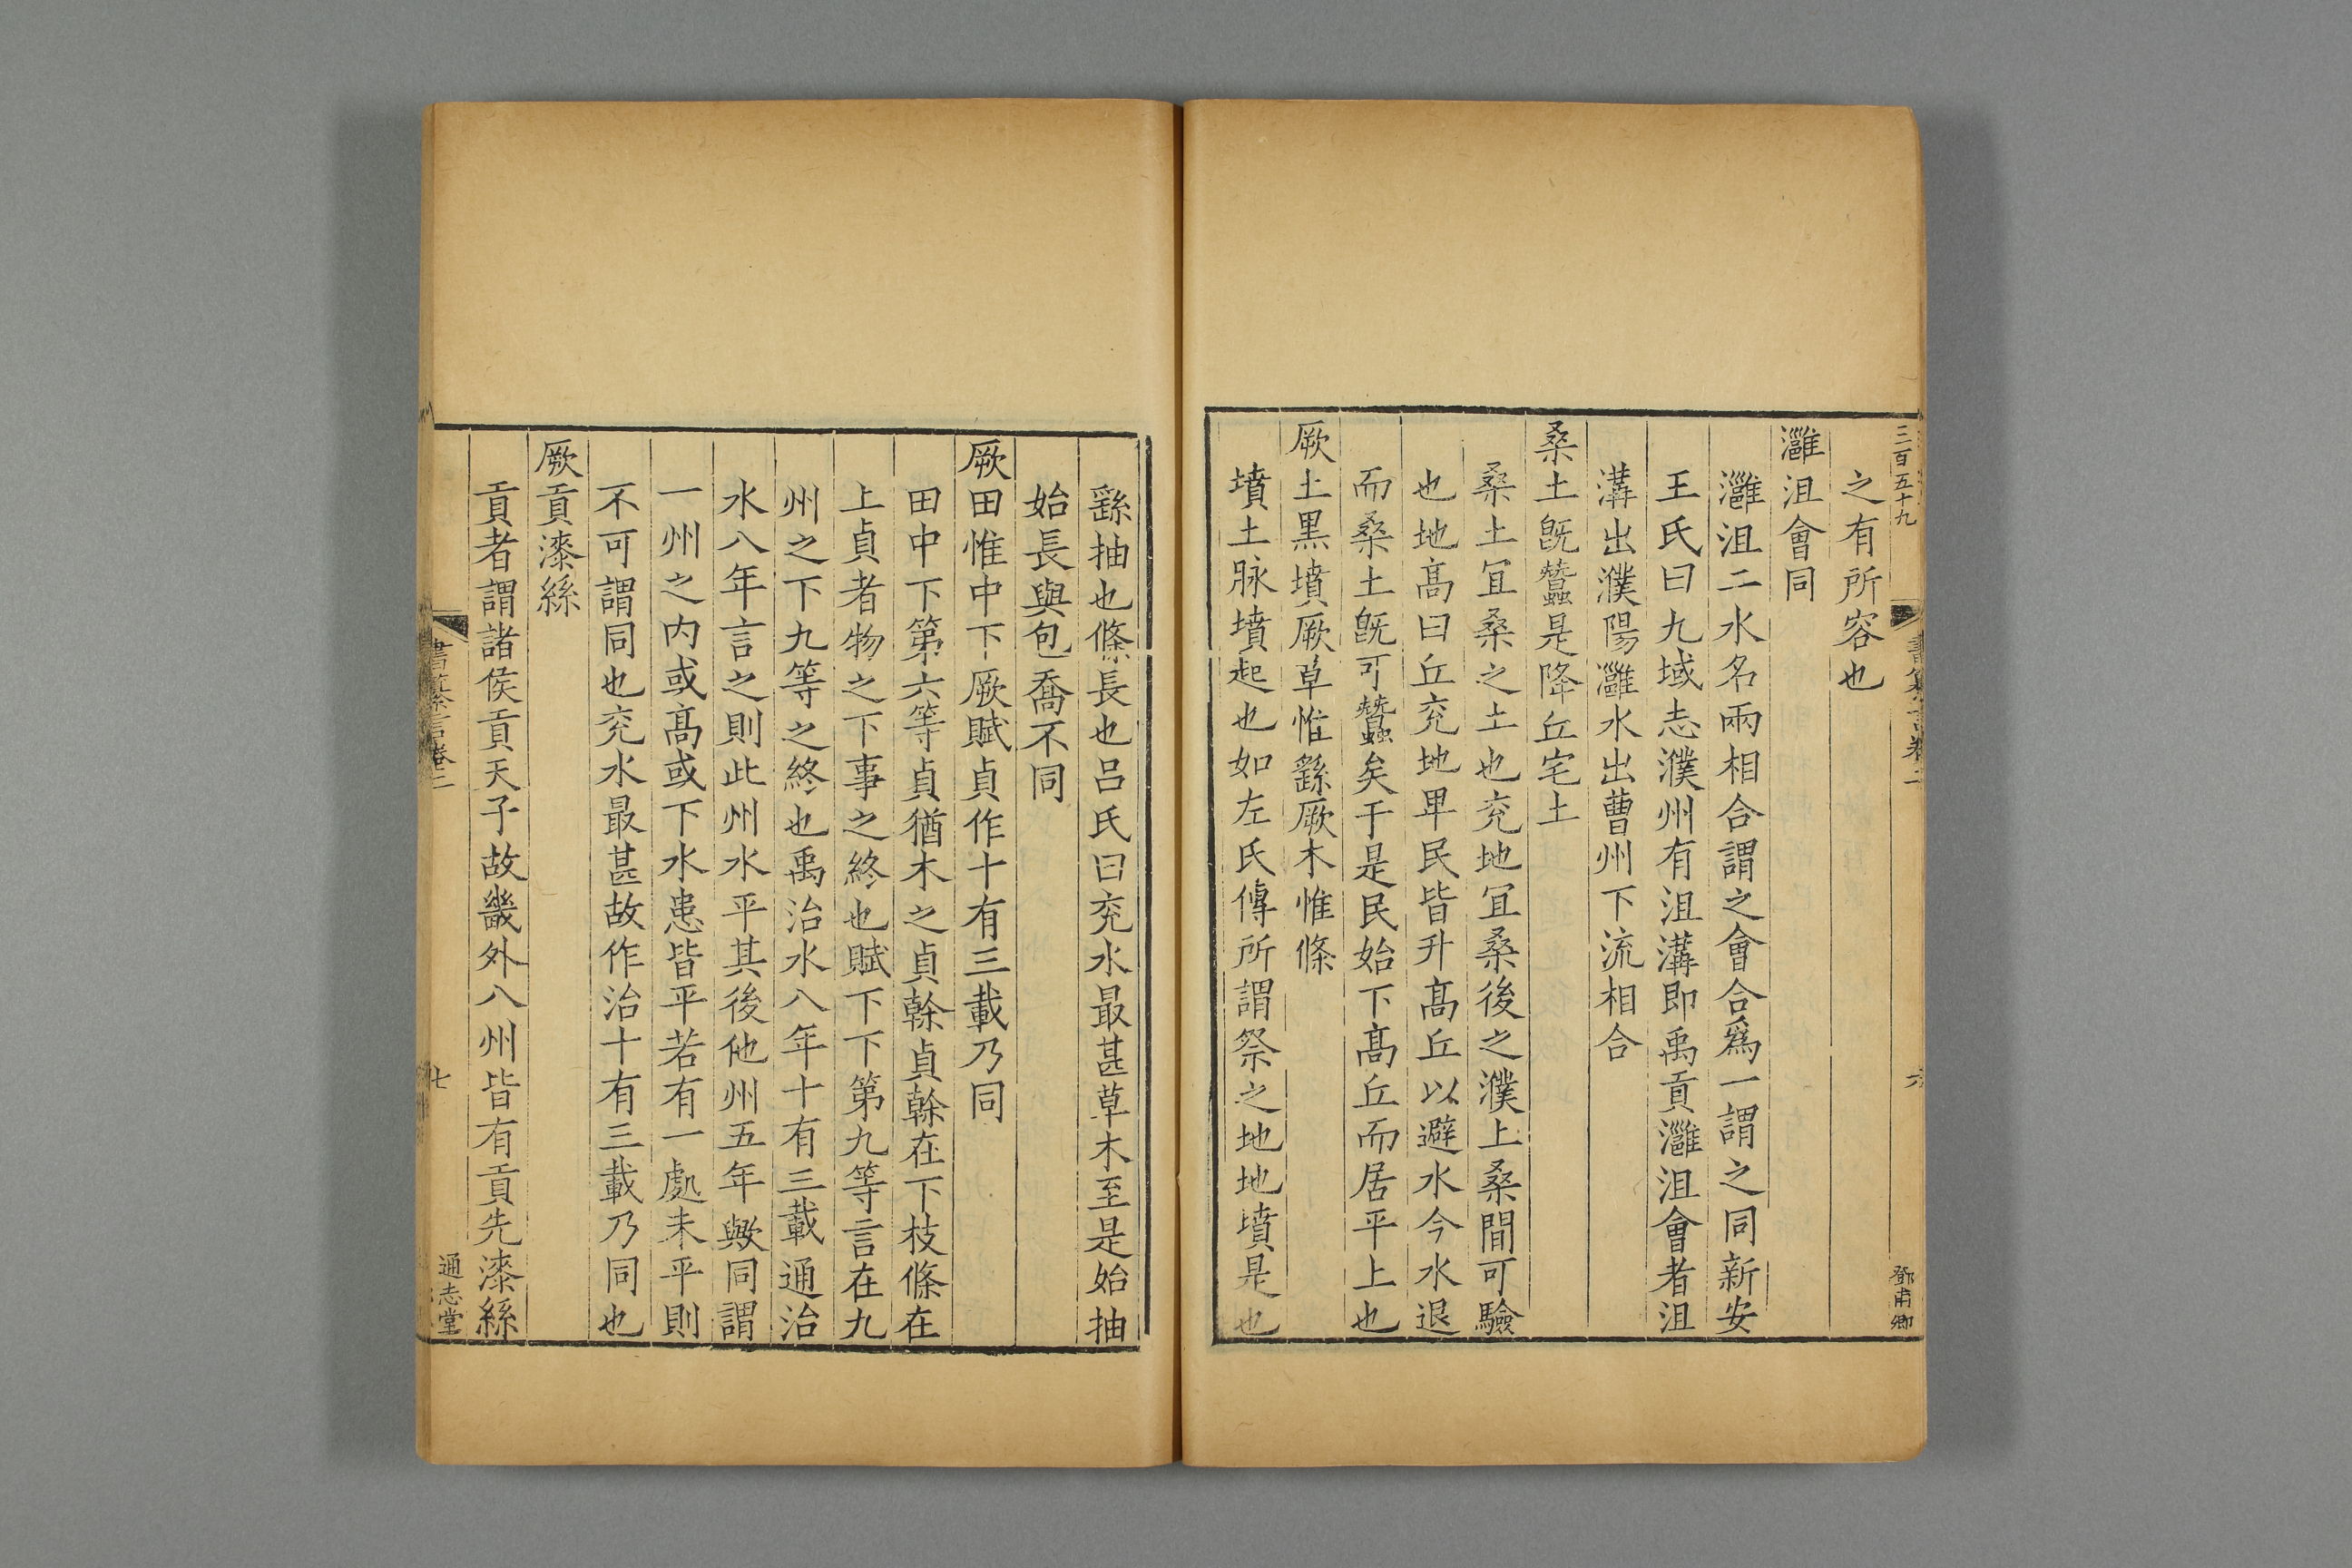 三百五十九
書纂言卷二
六
鄧甫卿
之有所容也
灉沮會同
灉沮二水名兩相合謂之會合爲一謂之同新安
王氏曰九域志濮州有沮溝即禹貢灉沮會者沮
溝出濮陽灉水出曹州下流相合
桑土旣蠶是降丘宅土
桑土冝桑之土也兖地冝桑後之濮上桑間可驗
也地髙曰丘兖地卑民皆升髙丘以避水今水退
而桑土旣可蠶矣于是民始下髙丘而居平土也
厥土黒墳厥草惟繇厥木惟條
墳土脉墳起也如左氏傳所謂祭之地地墳是也
繇抽也條長也呂氏曰兖水最甚草木至是始抽
始長與包喬不同
厥田惟中下厥賦貞作十有三載乃同
田中下第六等貞猶木之貞榦貞榦在下枝條在
上貞者物之下事之終也賦下下第九等言在九
州之下九等之終也禹治水八年十有三載通治
水八年言之則此州水平其後他州五年歟同謂
一州之内或髙或下水患皆平若有一處未平則
不可謂同也兖水最甚故作治十有三載乃同也
厥貢漆絲
貢者謂諸侯貢天子故畿外八州皆有貢先漆絲
書纂言卷二
七
通志堂